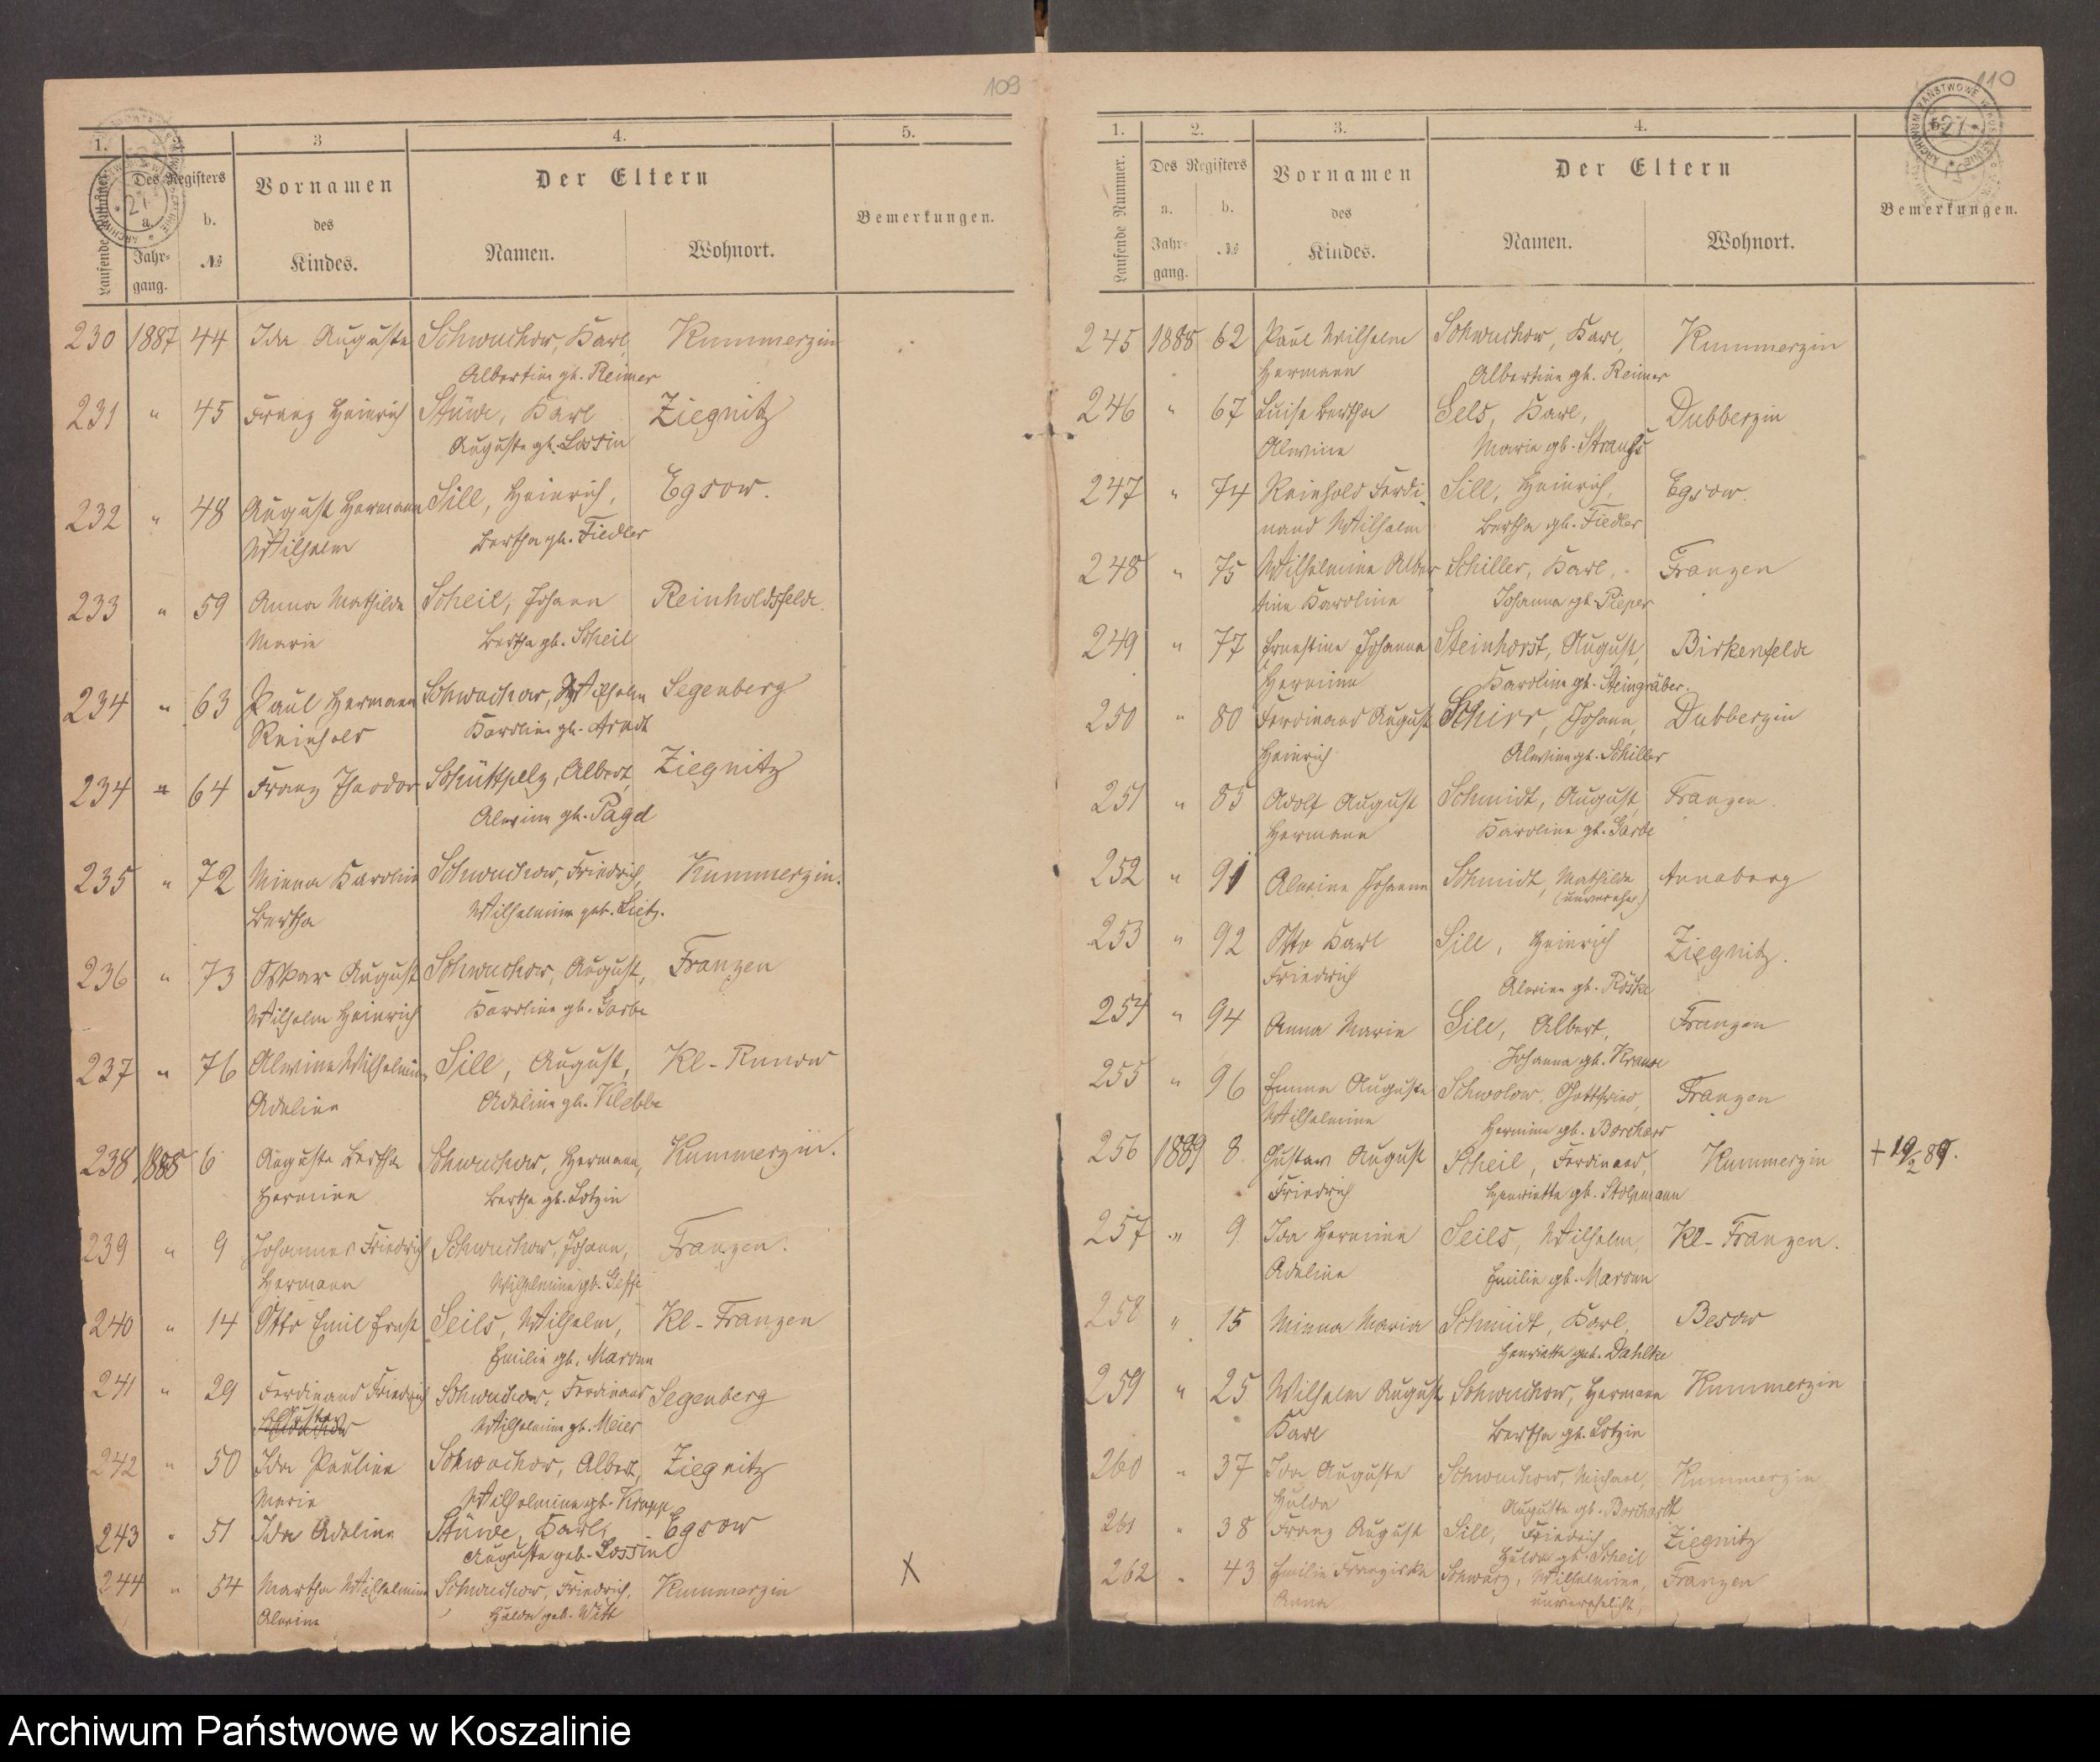 109
1.
3
4.
5.
Laufende Nummer.
Des Registers
a.
Jahr=
gang.
b.
№
Vornamen
des
Kindes.
Der Eltern
Namen.
Wohnort.
Bemerkungen.
230 1887 44 Ida Auguste Schwuchow, Karl, Kummerzin
Albertine gb. Reimer
231 " 45 Franz Heinrich Stüwe, Karl Ziegnitz
Auguste gb. Lossin
232 " 48 August Hermann Sill, Heinrich, Egsow.
Wilhelm Bertha gb. Fiedler
233 " 59 Anna Mathilde Scheil, Johann Reinholdsfelde.
Marie Bertha gb. Scheil
234 " 63 Paul Hermann Schwuchow, Wilhelm Segenberg
Reinhold Karoline gb. Arndt
234 " 64 Franz Theodor Schüttpelz, Albert, Ziegnitz
Alwine gb. Pagel
235 " 72 Minna Karoline Schwuchow, Friedrich, Kummerzin.
Bertha Wilhelmine geb. Lietz.
236 " 73 Oskar August Schwuchow, August, Franzen
Wilhelm Heinrich Karoline gb. Garbe
237 " 76 Alwine Wilhelmine Sill, August, Kl-Runow
Adeline Adeline gb. Klebbe
238 1888 6 Auguste Bertha Schwuchow, Hermann, Kummerzin.
Hermine Bertha gb. Lotzin
239 " 9 Johannes Friedrich Schwuchow, Johann, Franzen.
Hermann Wilhelmine gb.
240 " 14 Otto Emil Ernst Seils, Wilhelm, Kl-Franzen
Emilie gb. Maronn
241 " 29 Ferdinand Friedrich Schwuchow, Ferdinand Segenberg
Gustav Wilhelmine gb. Meier
242 " 50 Ida Pauline Schwuchow, Albert, Ziegnitz
Marie Wilhelmine gb. Krapp
243 " 51 Ida Adeline Stüwe, Karl, Egsow
Auguste geb. Lossin
244 " 54 Martha Wilhelmine Schwuchow, Friedrich, Kummerzin X
Alwine Hulda geb. Witt
110
1.
2.
3.
4.
Laufende Nummer.
Des Registers
a.
Jahr=
gang.
b.
№
Vornamen
des
Kindes.
Der Eltern
Namen.
Wohnort.
Bemerkungen.
245 1888 62 Paul Wilhelm Schwuchow, Karl, Kummerzin
Hermann Albertine gb. Reimer
246 " 67 Luise Bertha Sels, Karl, Dubberzin
Alwine Marie gb. Strauß
247 " 74 Reinhold Ferdi Sill, Heinrich, Egsow.
nand Wilhelm Bertha gb. Fiedler
248 " 75 Wilhelmine Alber Schiller, Karl, Franzen
tine Karoline Johanna gb. Pieper
249 " 77 Ernestine Johanna Steinhorst, August, Birkenfelde
Hermine Karoline gb. Steingräber.
250 " 80 Ferdinand August Schirr, Johann, Dubberzin
Heinrich Alwine gb. Schiller
251 " 85 Adolf August Schmidt, August, Franzen.
Hermann Karoline gb. Garbe
252 " 91 Alwine Johanna Schmidt, Mathilde Annaberg
(unverehel.)
253 " 92 Otto Karl Sill, Heinrich Ziegnitz.
Friedrich Alwine gb. Röske
254 " 94 Anna Marie Sill, Albert, Franzen
Johanna gb. Krause
255 " 96 Emma Auguste Schwolow, Gottfried, Franzen
Wilhelmine Hermine gb. Borchard
256 1889 8 Gustav August Scheil, Ferdinand, Kummerzin + 19/2 89.
Friedrich Henriette gb. Stolpmann
257 " 9 Ida Hermine Seils, Wilhelm, Kl-Franzen.
Adeline Emilie gb. Maronn
258 " 15 Minna Maria Schmidt, Karl, Besow
Henriette geb. Dahlke
259 " 25 Wilhelm August Schwuchow, Hermann Kummerzin
Karl Bertha gb. Lotzin
260 " 37 Ida Auguste Schwuchow, Michael, Kummerzin
Hulda Auguste gb. Borchardt
261 " 38 Franz August Sill, Friedrich Ziegnitz
Hulda gb. Scheil
262 " 43 Emilie Franziska Schwarz, Wilhelmine, Franzen
Anna unverehelicht,
Archiwum Państwowe w Koszalinie